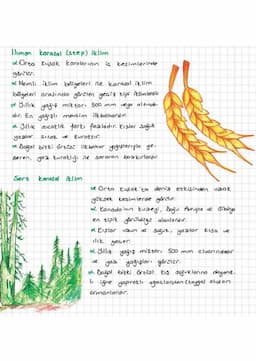 Ilıman karasal (step) iklim
Orta kuşak karaların iç kesimlerinde
görülür.
Nemli iklim bölgeleri ile karasal iklim
bölgeleri arasında görülen geçiş tipi iklimdir
Yıllık yağış miktarı 500 mm veya altında-
dır. En yağışlı mevsim ilkbahardır.
Yıllık sıcaklık farkı fazladır. Kışlar soğuk
yazlar sıcak ve kuraktır.
Doğal bitki örtüsü ilkbahar yağışlarıyla ye-
şeren, yaz kuraklığı ile sararan bozkırlardır
Sert karasal iklim
Orta kuşak'ta deniz etkisinden uzak
yüksek kesimlerde görülür.
Kanada'nın kuzeyi, Doğu Avrupa ve Sibirya
en tipik görüldüğü alanlardır.
Kışlar uzun ve soğuk, yazlar kısa ve
ılık geçer.
Yıllık yağış miktarı 500 mm civarındadır
ve yaz yağışları görülür.
Doğal bitki örtüsü kış soğuklarına dayanık-
lı iğne yapraklı ağaçlardan (tayga) oluşan
ormanlardır.